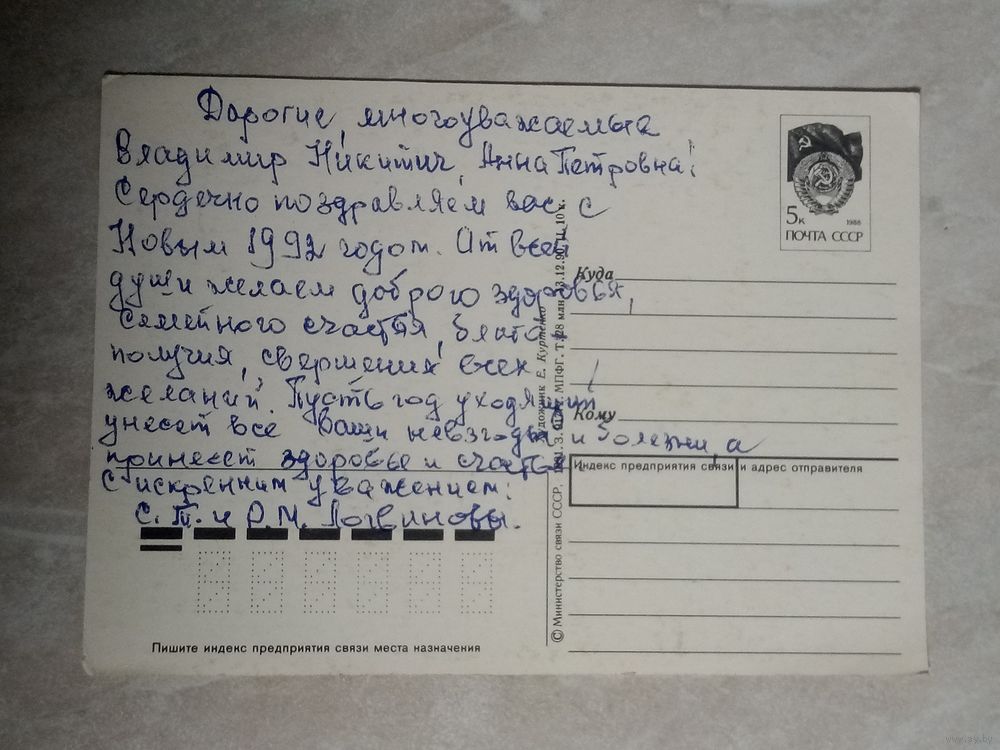 Дорогие, многоуважаемые
Владимир Никитич, Анна Петровна!
Сердечно поздравляем вас с
Новым 1992 годом. От всей
души желаем доброго здоровья,
семейного счастья, благо-
получия, свершения всех
желаний. Пусть год уходящий
унесет все Ваши невзгоды и болезни, а
принесет здоровье и счастье
С искренним уважением:
С. Т. и Р. М. Логвиновы.
Пишите индекс предприятия связи места назначения
© Министерство связи СССР,
Художник Е. Куртенко
5к
1988
ПОЧТА СССР
Куда
Кому
Индекс предприятия связи и адрес отправителя
www.ay.by